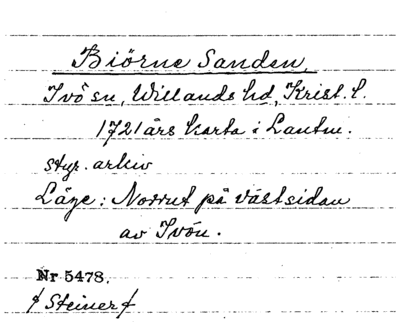 Biörne Sanden,
Ivö sn, Willands hd, Krist. l.
1721 års karta i Lantm.
styr. arkiv
Läge: Norrut på västsidan
av Ivön.
Nr 5478.
/Steiner/